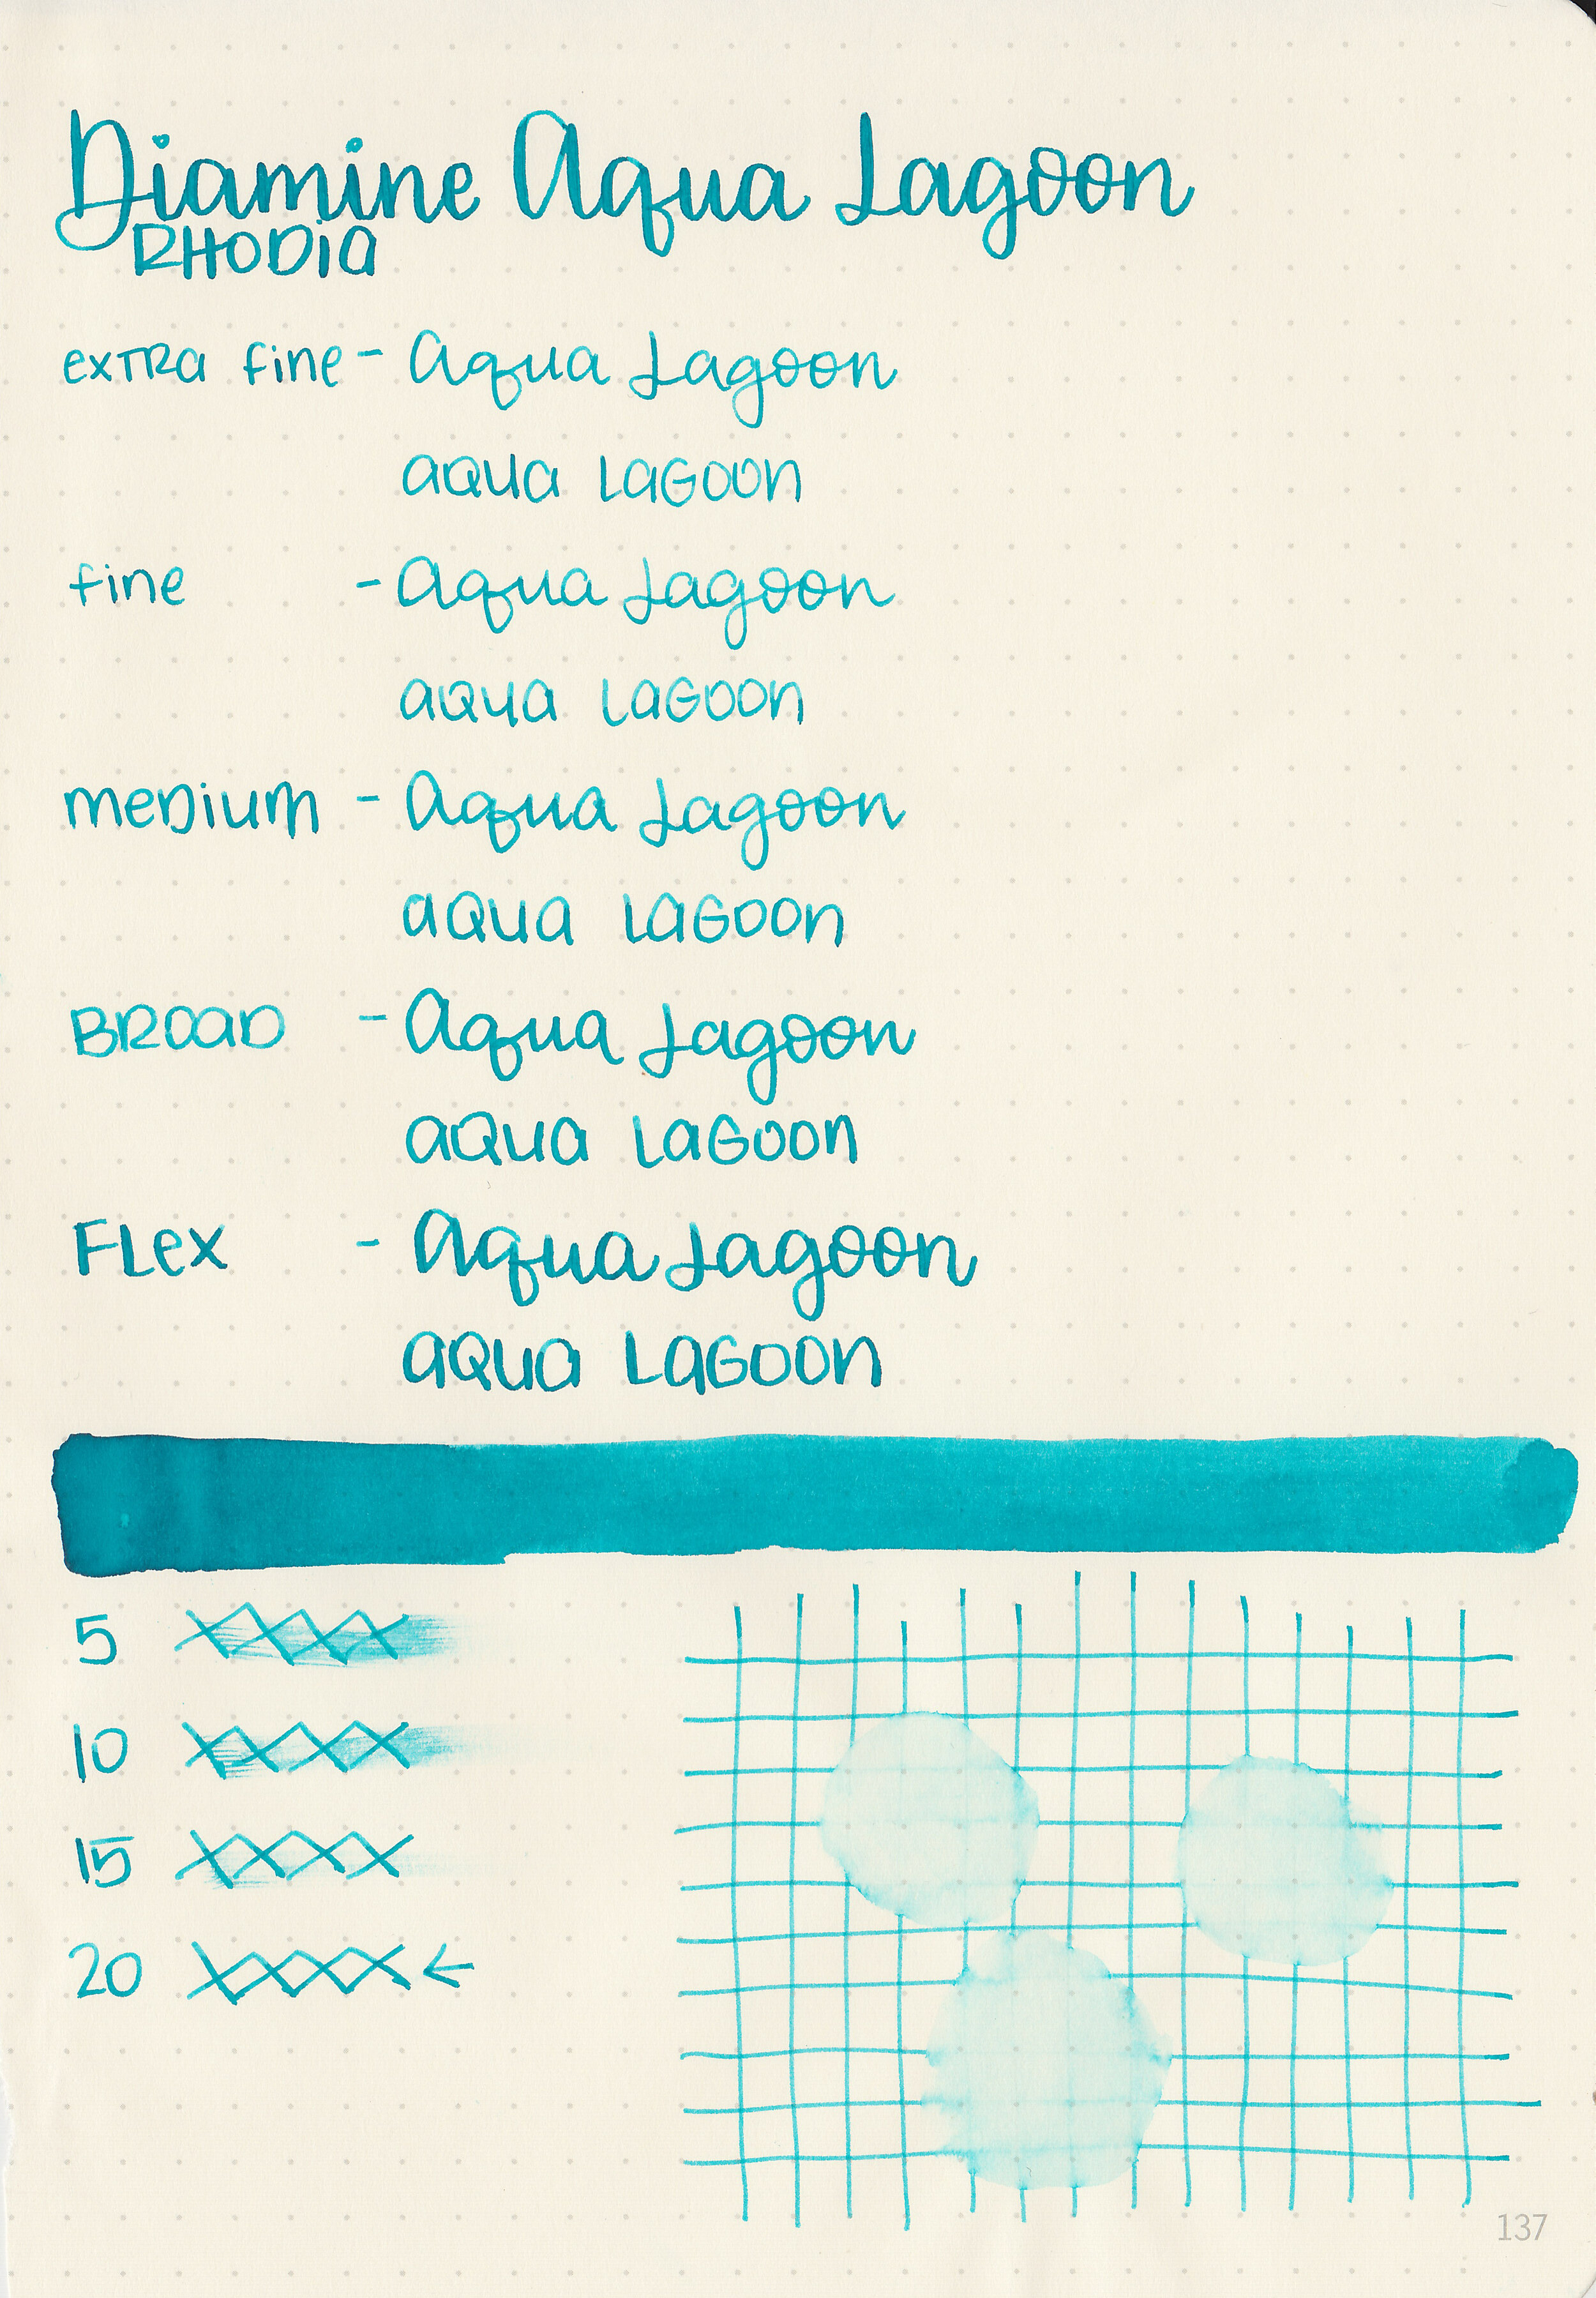 Diamine Aqua Lagoon
RHODIA
extra fine - Aqua Lagoon
aqua Lagoon
fine - Aqua Lagoon
aqua Lagoon
medium - Aqua Lagoon
aqua Lagoon
BROAD - Aqua Lagoon
aqua Lagoon
FLex - Aqua Lagoon
aqua Lagoon
5 XXXX
10 XXXX
15 XXXX
20 XXXX ←
137